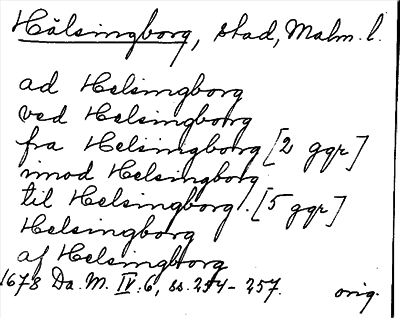 Hälsingborg, stad, Malm. l.
ad Helsingborg
ved Helsingborg
fra Helsingborg [2 ggr]
imod Helsingborg
til Helsingborg. [5 ggr]
Helsingborg
af Helsingborg
1678 Da. M. IV:6, ss. 254-257. orig.